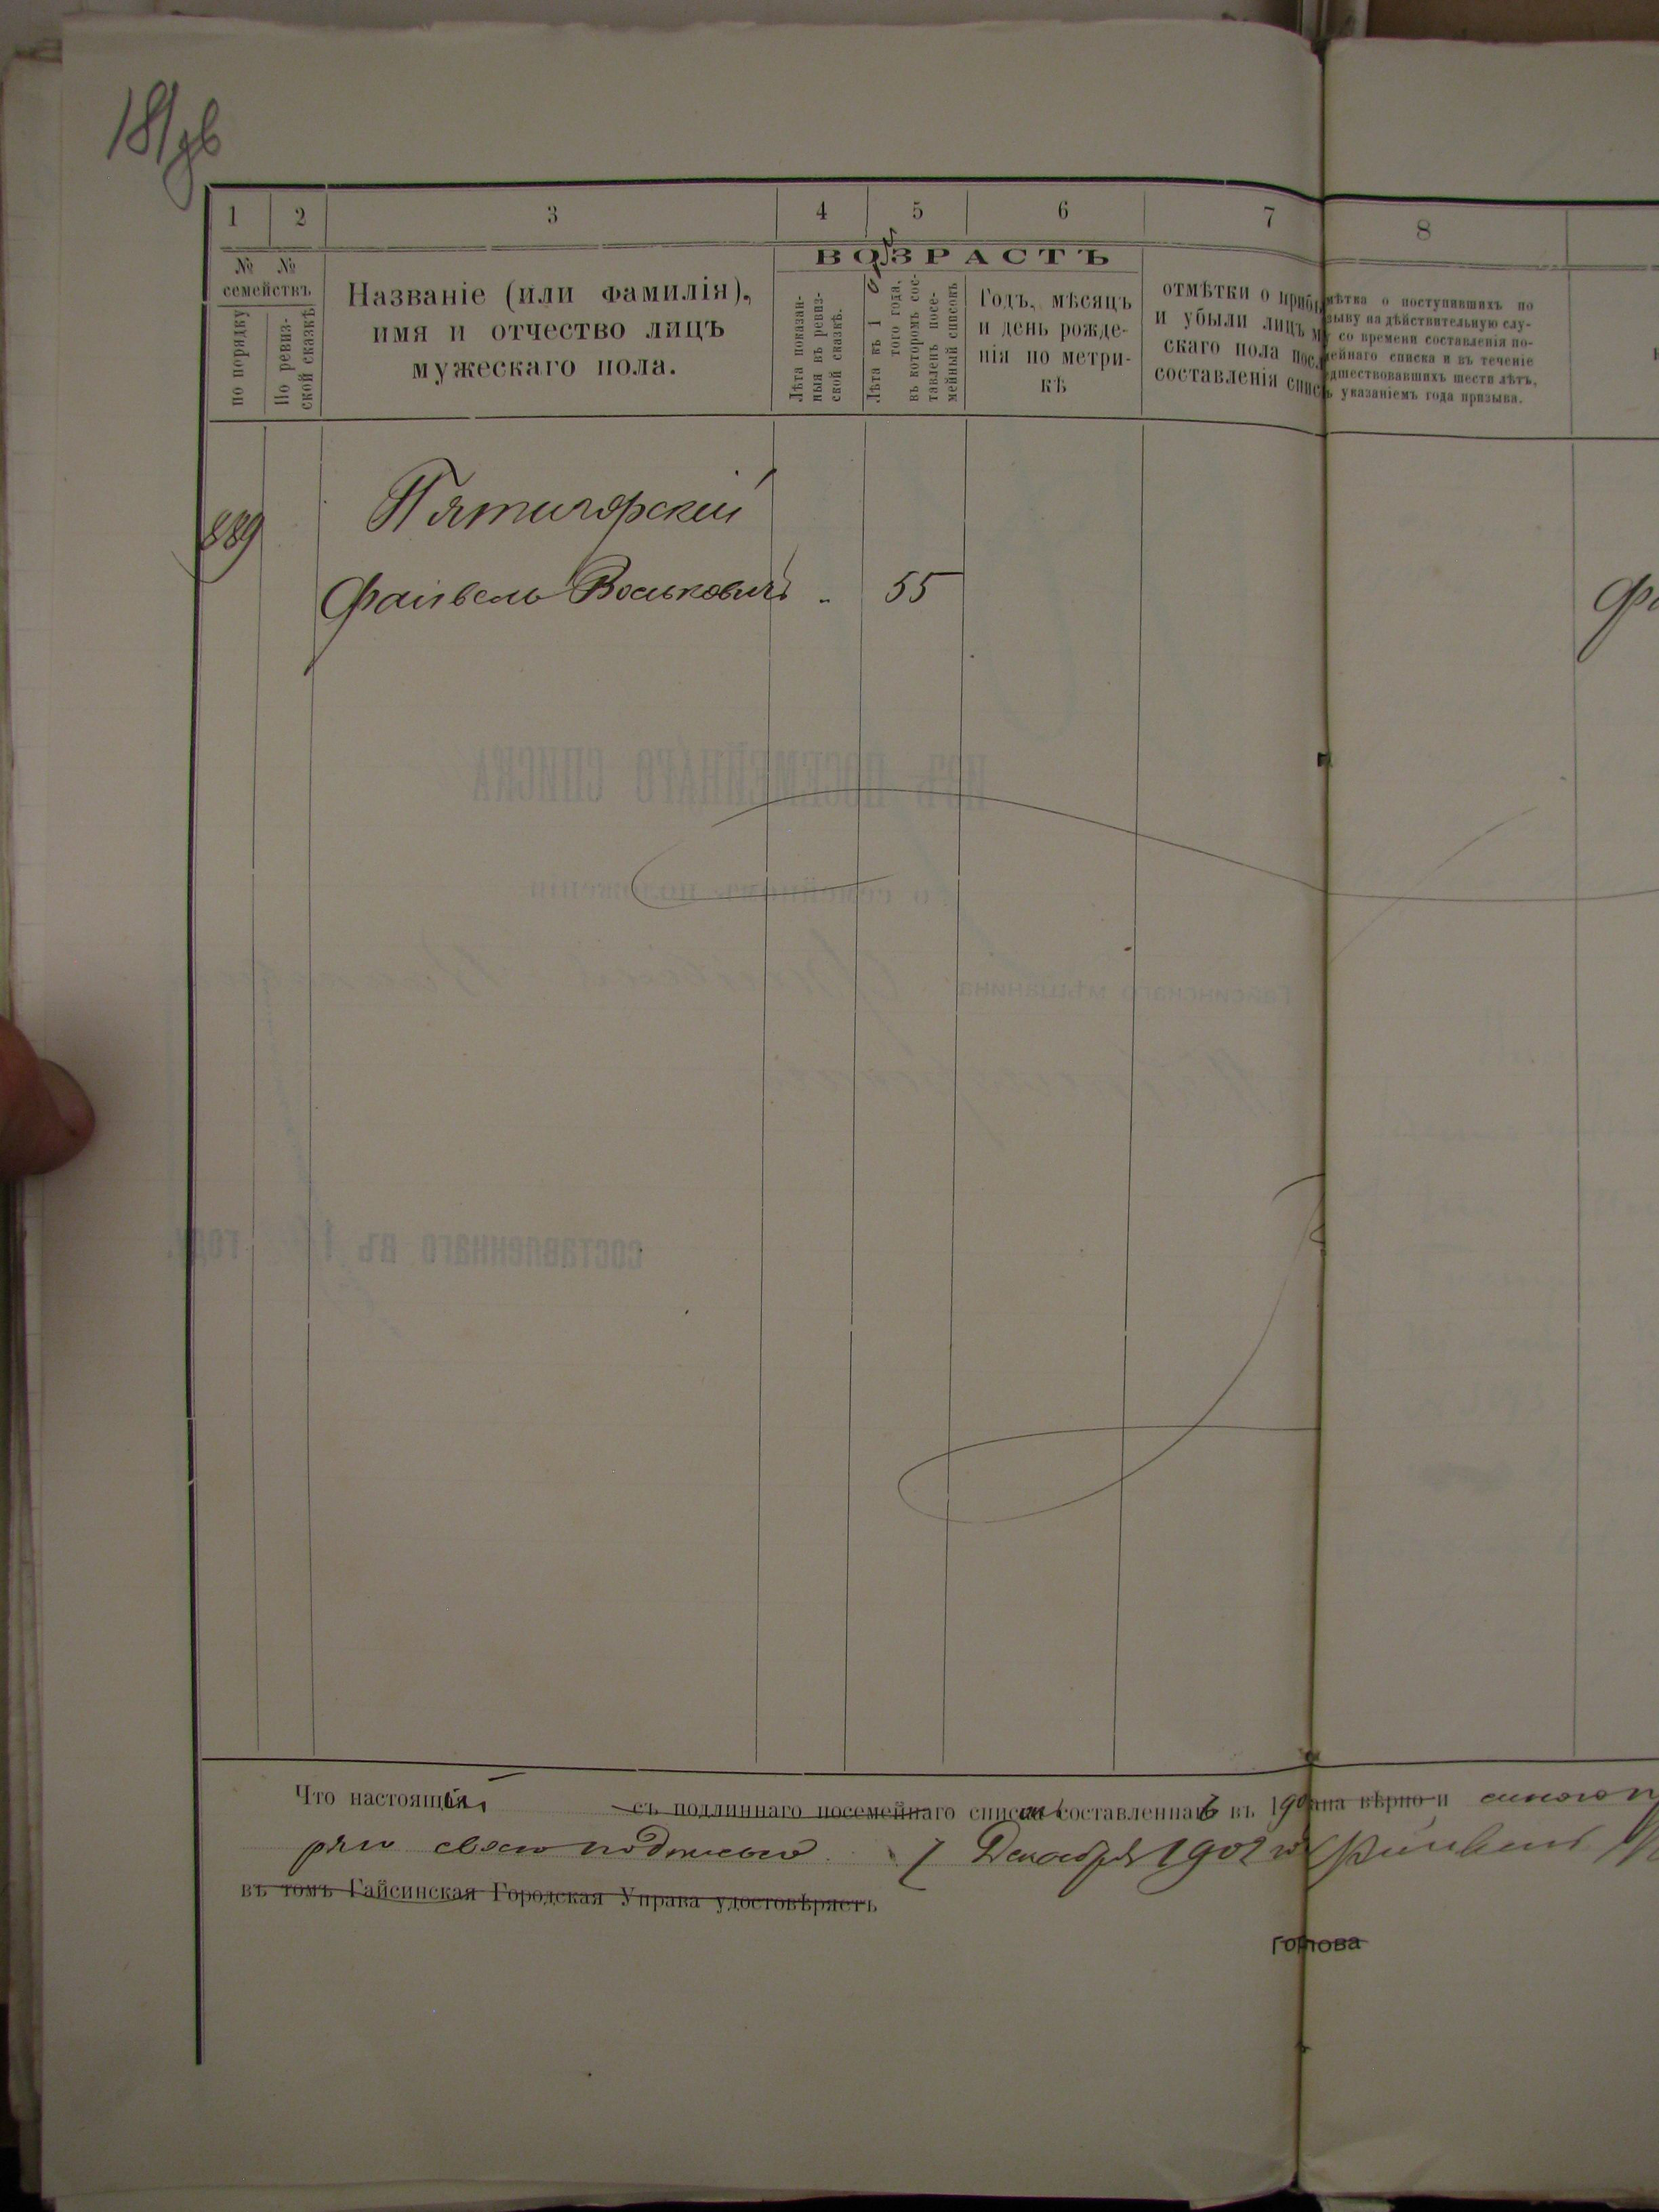 181 зв
1 2 3 4 5 6 7 8
№ №
семействъ
по порядку
По ревиз-
ской сказкѣ
Названіе (или фамилія),
имя и отчество лицъ
мужескаго пола.
ВОЗРАСТЪ
Лѣта показан-
ныя въ ревиз-
ской сказкѣ.
Лѣта къ 1
того года,
въ которомъ сос-
тавленъ посе-
мейный списокъ
Годъ, мѣсяцъ
и день рожде-
нія по метри-
кѣ
отмѣтки о прибы
и убыли лицъ му
скаго пола посл
составленія спис
мѣтка о поступившихъ по
зыву на дѣйствительную слу-
со времени составленія по-
мейнаго списка и въ теченіе
дшествовавшихъ шести лѣтъ,
ъ указаніемъ года призыва.
Пятигорскій
889
Файвель Воськовичъ - 55
Что настоящій съ подлиннаго посемейнаго списка составленнаго въ 190 вѣрно и
ряю своею подписью 7 Декабря 1902 г Файвель
въ томъ Гайсинская Городская Управа удостовѣряетъ
голова